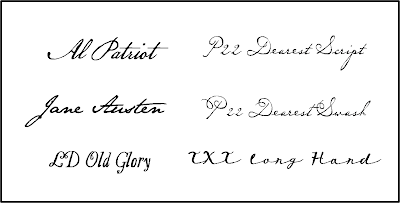 Al Patriot
P22 Dearest Script
Jane Austen
P22 Dearest Swash
LD Old Glory
XXX Long Hand